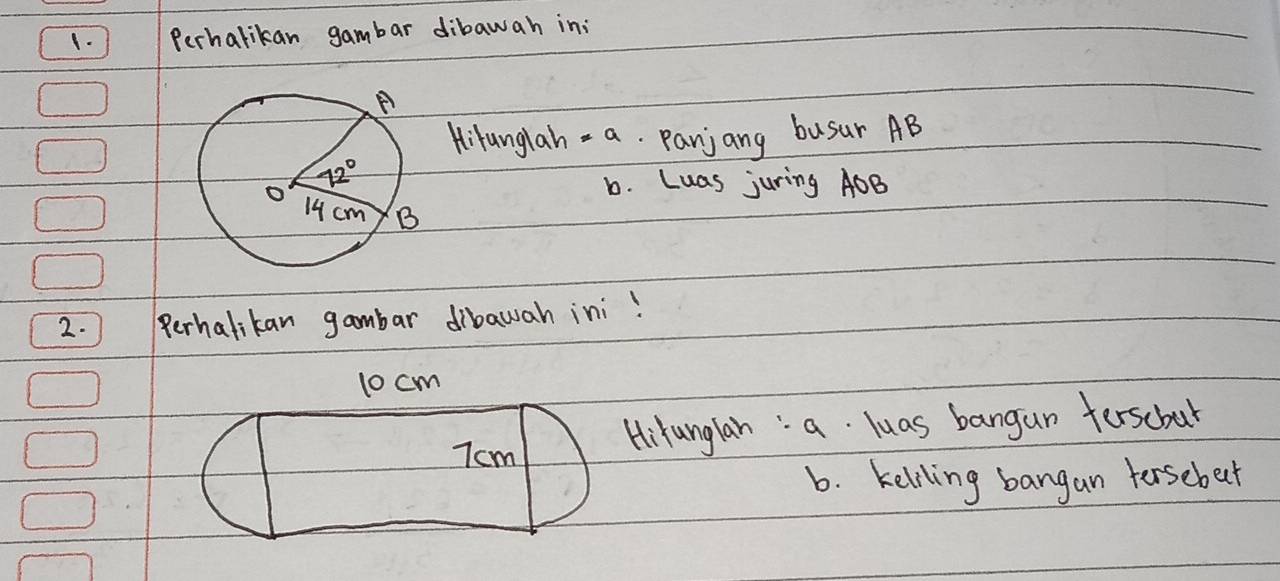 1. Perhatikan gambar dibawah ini
A
Hitunglah = a. Panjang busur AB
72°
O
b. Luas juring AOB
14 cm
B
2. Perhatikan gambar dibawah ini !
10 cm
Hitunglah : a. luas bangun tersebut
7cm
b. keliling bangun tersebut